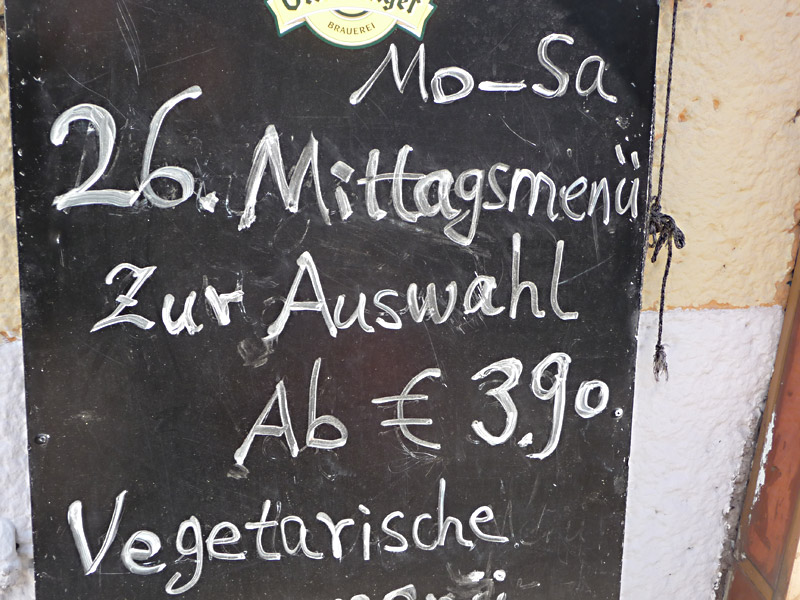 BRAUEREI
Mo-Sa
26. Mittagsmenü
Zur Auswahl
Ab € 3.90
Vegetarische